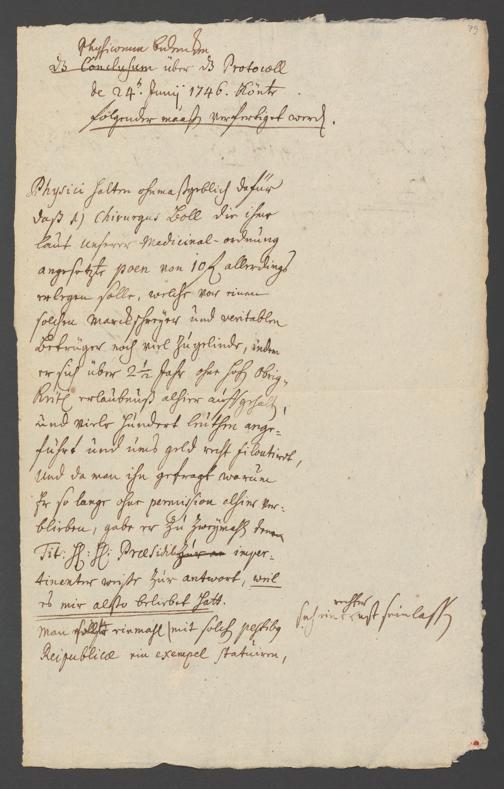 79
Physicorum bedencken
dz Conclusum über dz Protocoll
de 24t. Junij 1746. könte
folgender maaß verfertiget werd.
Physici halten ohnmaßgeblich dafür
daß 1) Chirurgus Boll die ihme
laut unserer Medicinal-ordnung
angesetzte poen von 10 allerdings
erlegen solle, welche vor einen
solchen Marckschreyer und veritablen
Betrüger noch viel zu gelinde, indem
er sich über 2 1/2 Jahr ohne hoh. Obrig-
keitl. erlaubnuß alhier auffgehalt.,
und viele hundert leuthe ange-
führt und ums geld recht filoutirt,
und da man ihn gefragt warum
Er so lange ohne permission alhier ver-
blieben, gabe er zu zweymahl denen
Tit: H: H: Præsid. imper-
tinenter weiße zur antwort, weil
es mir also beliebet hatt.
Man sollte einmahl mit solch pestib.
Reipublicæ ein exempel statuiren,
rechter
ernst sein lass